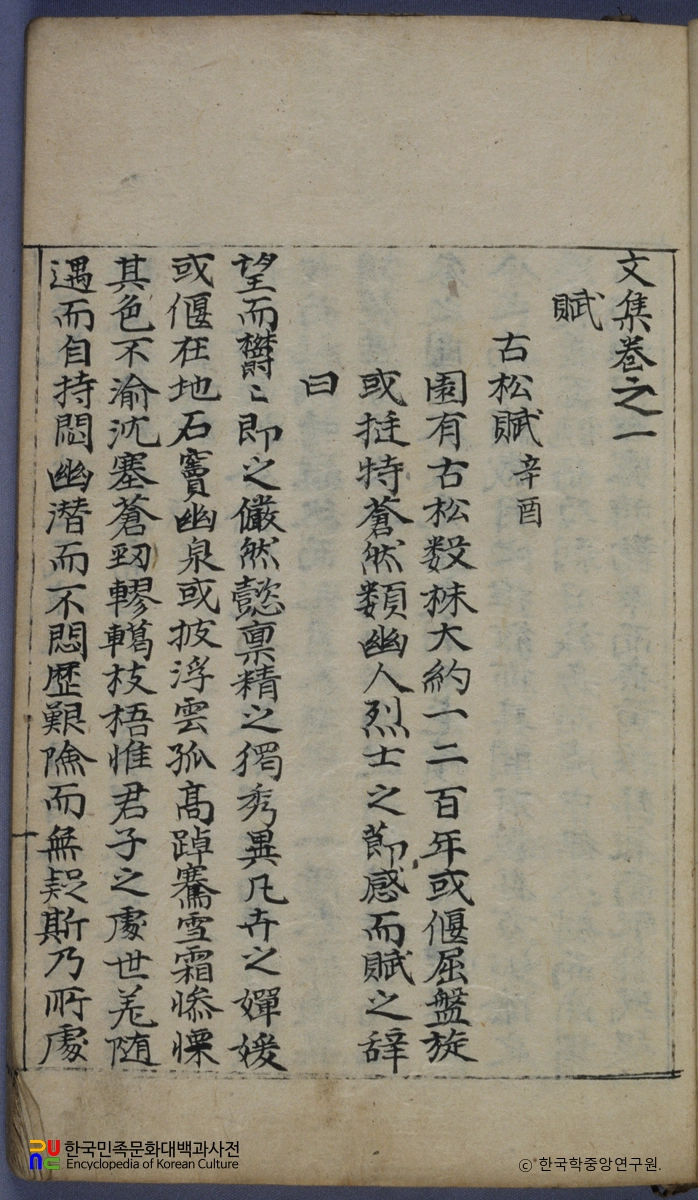 文集卷之一
賦
古松賦 辛酉
園有古松数株大約一二百年或偃屈盤旋
或挺特蒼然類幽人烈士之節感而賦之辞
曰
望而欝〻即之儼然懿禀精之獨秀異凡卉之嬋媛
或偃在地石竇幽泉或披浮雲孤高踔騫雪霜惨慄
其色不渝沈塞蒼劲轇轕枝梧惟君子之處世羌随
遇而自持悶幽潛而不悶歴艱險而無疑斯乃所處
한국민족문화대백과사전
Encyclopedia of Korean Culture
ⓒ 한국학중앙연구원.